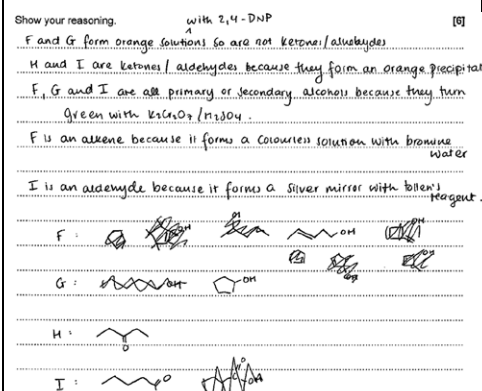 Show your reasoning. [6]
with 2,4-DNP
F and G form orange solutions so are not ketones/aldehydes
H and I are ketones/ aldehydes because they form an orange precipitat
F, G and I are all primary or secondary alcohols because they turn
green with K2Cr2O7 /H2SO4.
F is an alkene because it forms a colourless solution with bromine
water
I is an aldehyde because it forms a silver mirror with tollen's
reagent.
F : OH
G : OH
H : O
I : O